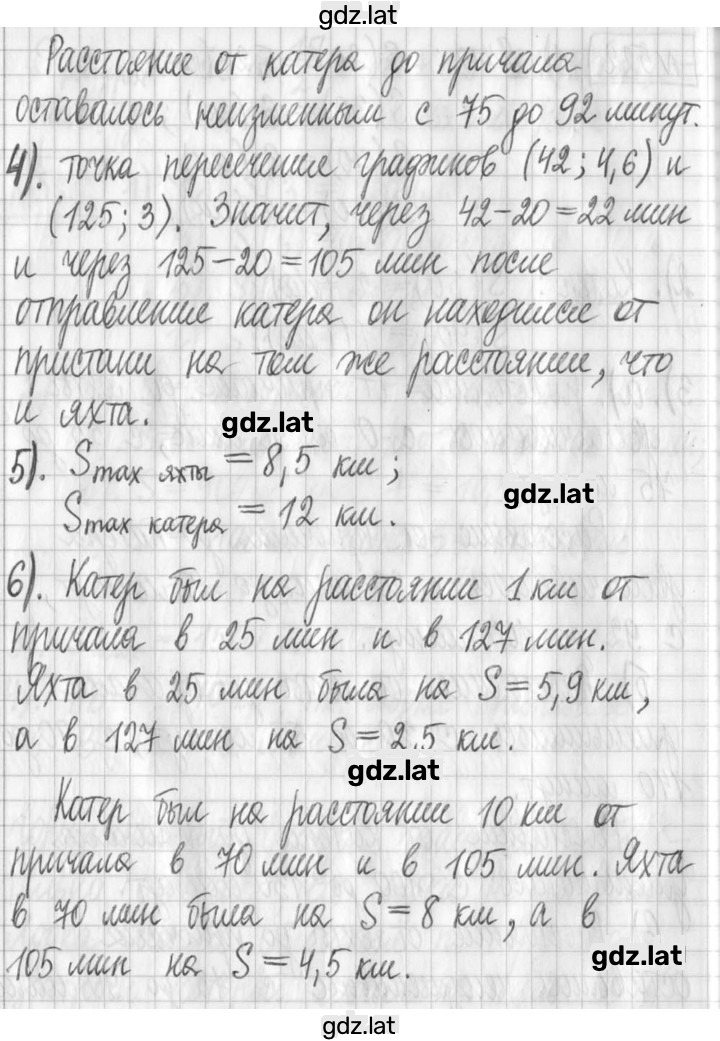 gdz.lat
Расстояние от катера до причала
оставалось неизменным с 75 до 92 минут.
4). точка пересечения графиков (42; 4,6) и
(125; 3). Значит, через 42-20=22 мин
и через 125-20=105 мин после
отправления катера он находился от
пристани на том же расстоянии, что
и яхта.
gdz.lat
5). Smax яхты = 8,5 км;
gdz.lat
Smax катера = 12 км.
6). Катер был на расстоянии 1 км от
причала в 25 мин и в 127 мин.
Яхта в 25 мин была на S=5,9 км,
а в 127 мин на S=2,5 км.
gdz.lat
Катер был на расстоянии 10 км от
причала в 70 мин и в 105 мин. Яхта
в 70 мин была на S=8 км, а в
105 мин на S=4,5 км.
gdz.lat
gdz.lat